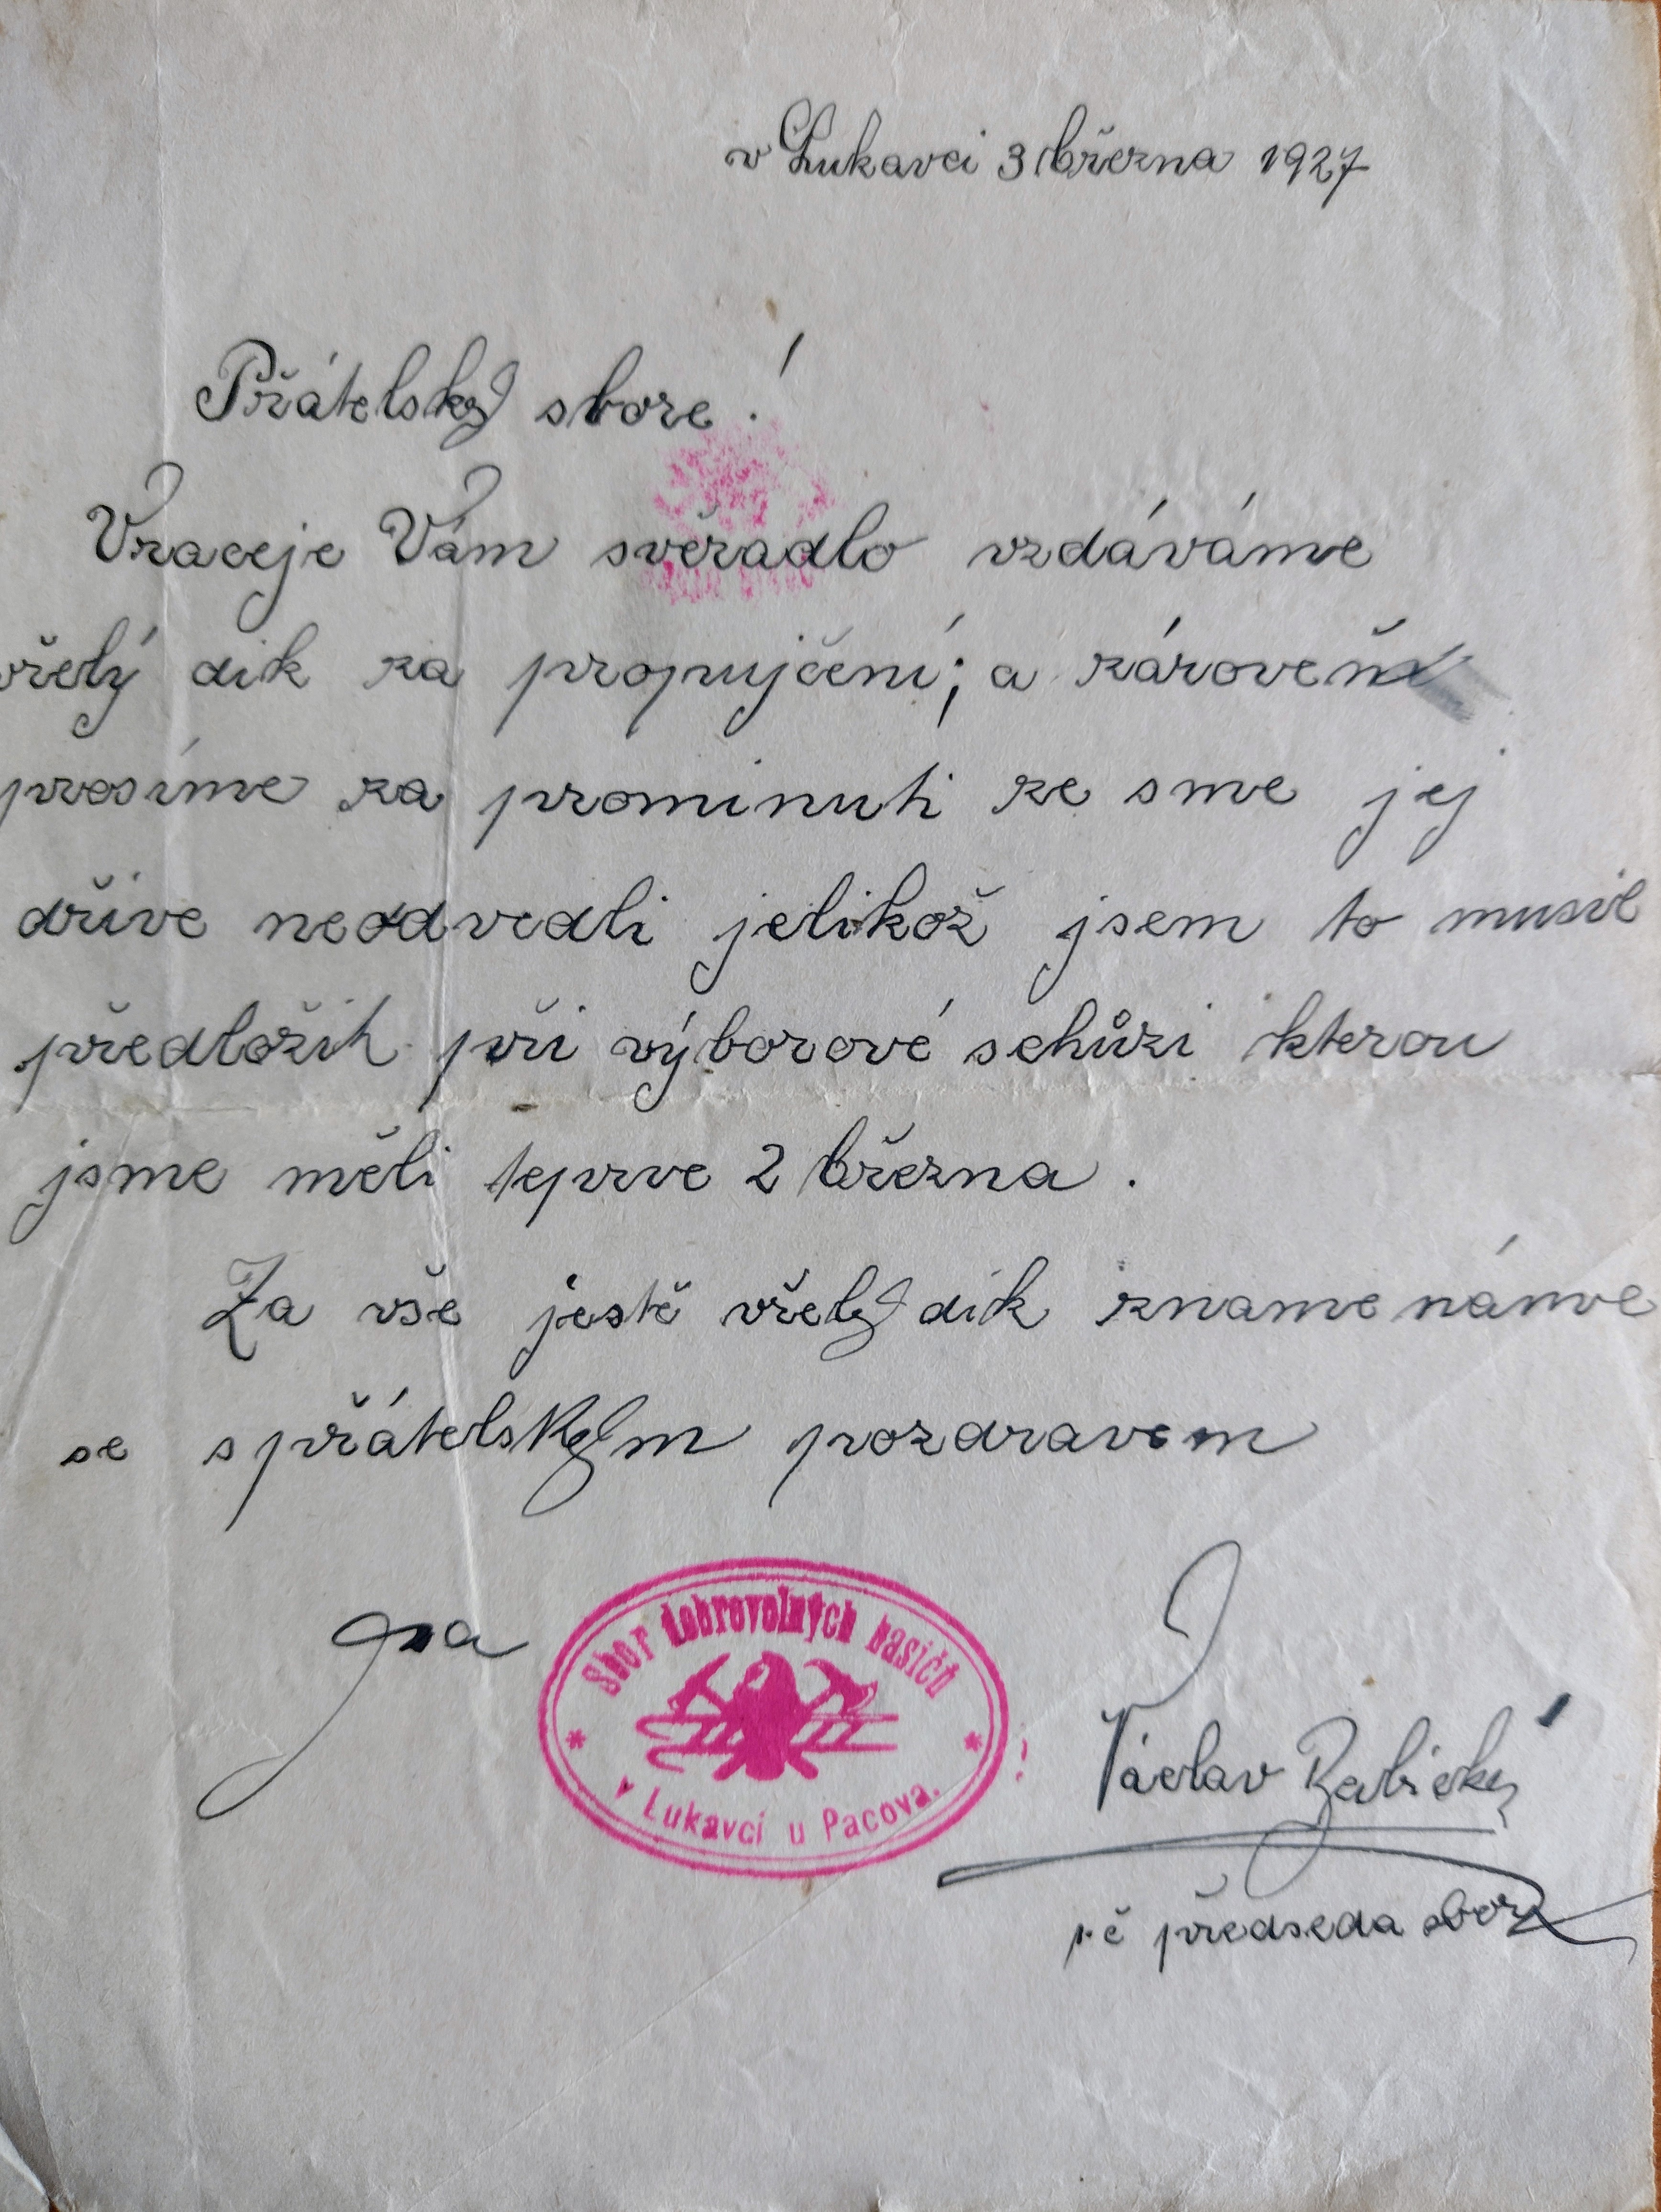 v Lukavci 3 března 1927
Přátelský sbore!
Vraceje Vám svěradlo vzdáváme
vřelý dik za propujčení; a zároveň
prosíme za prominuti ze sme jej
dříve neodvedli jelikož jsem to musil
předložiti při výborové schůzi kterou
jsme měli teprve 2 března.
Za vše jestě vřelý dík zname náme
se s přátelským pozdravem
Sbor dobrovolných hasičů
v Lukavci u Pacova.
Václav
předseda sboru